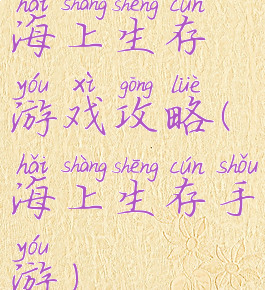 hǎi shàng shēng cún
海上生存
yóu xì gōng lüè
游戏攻略(
hǎi shàng shēng cún shǒu
海上生存手
yóu
游)